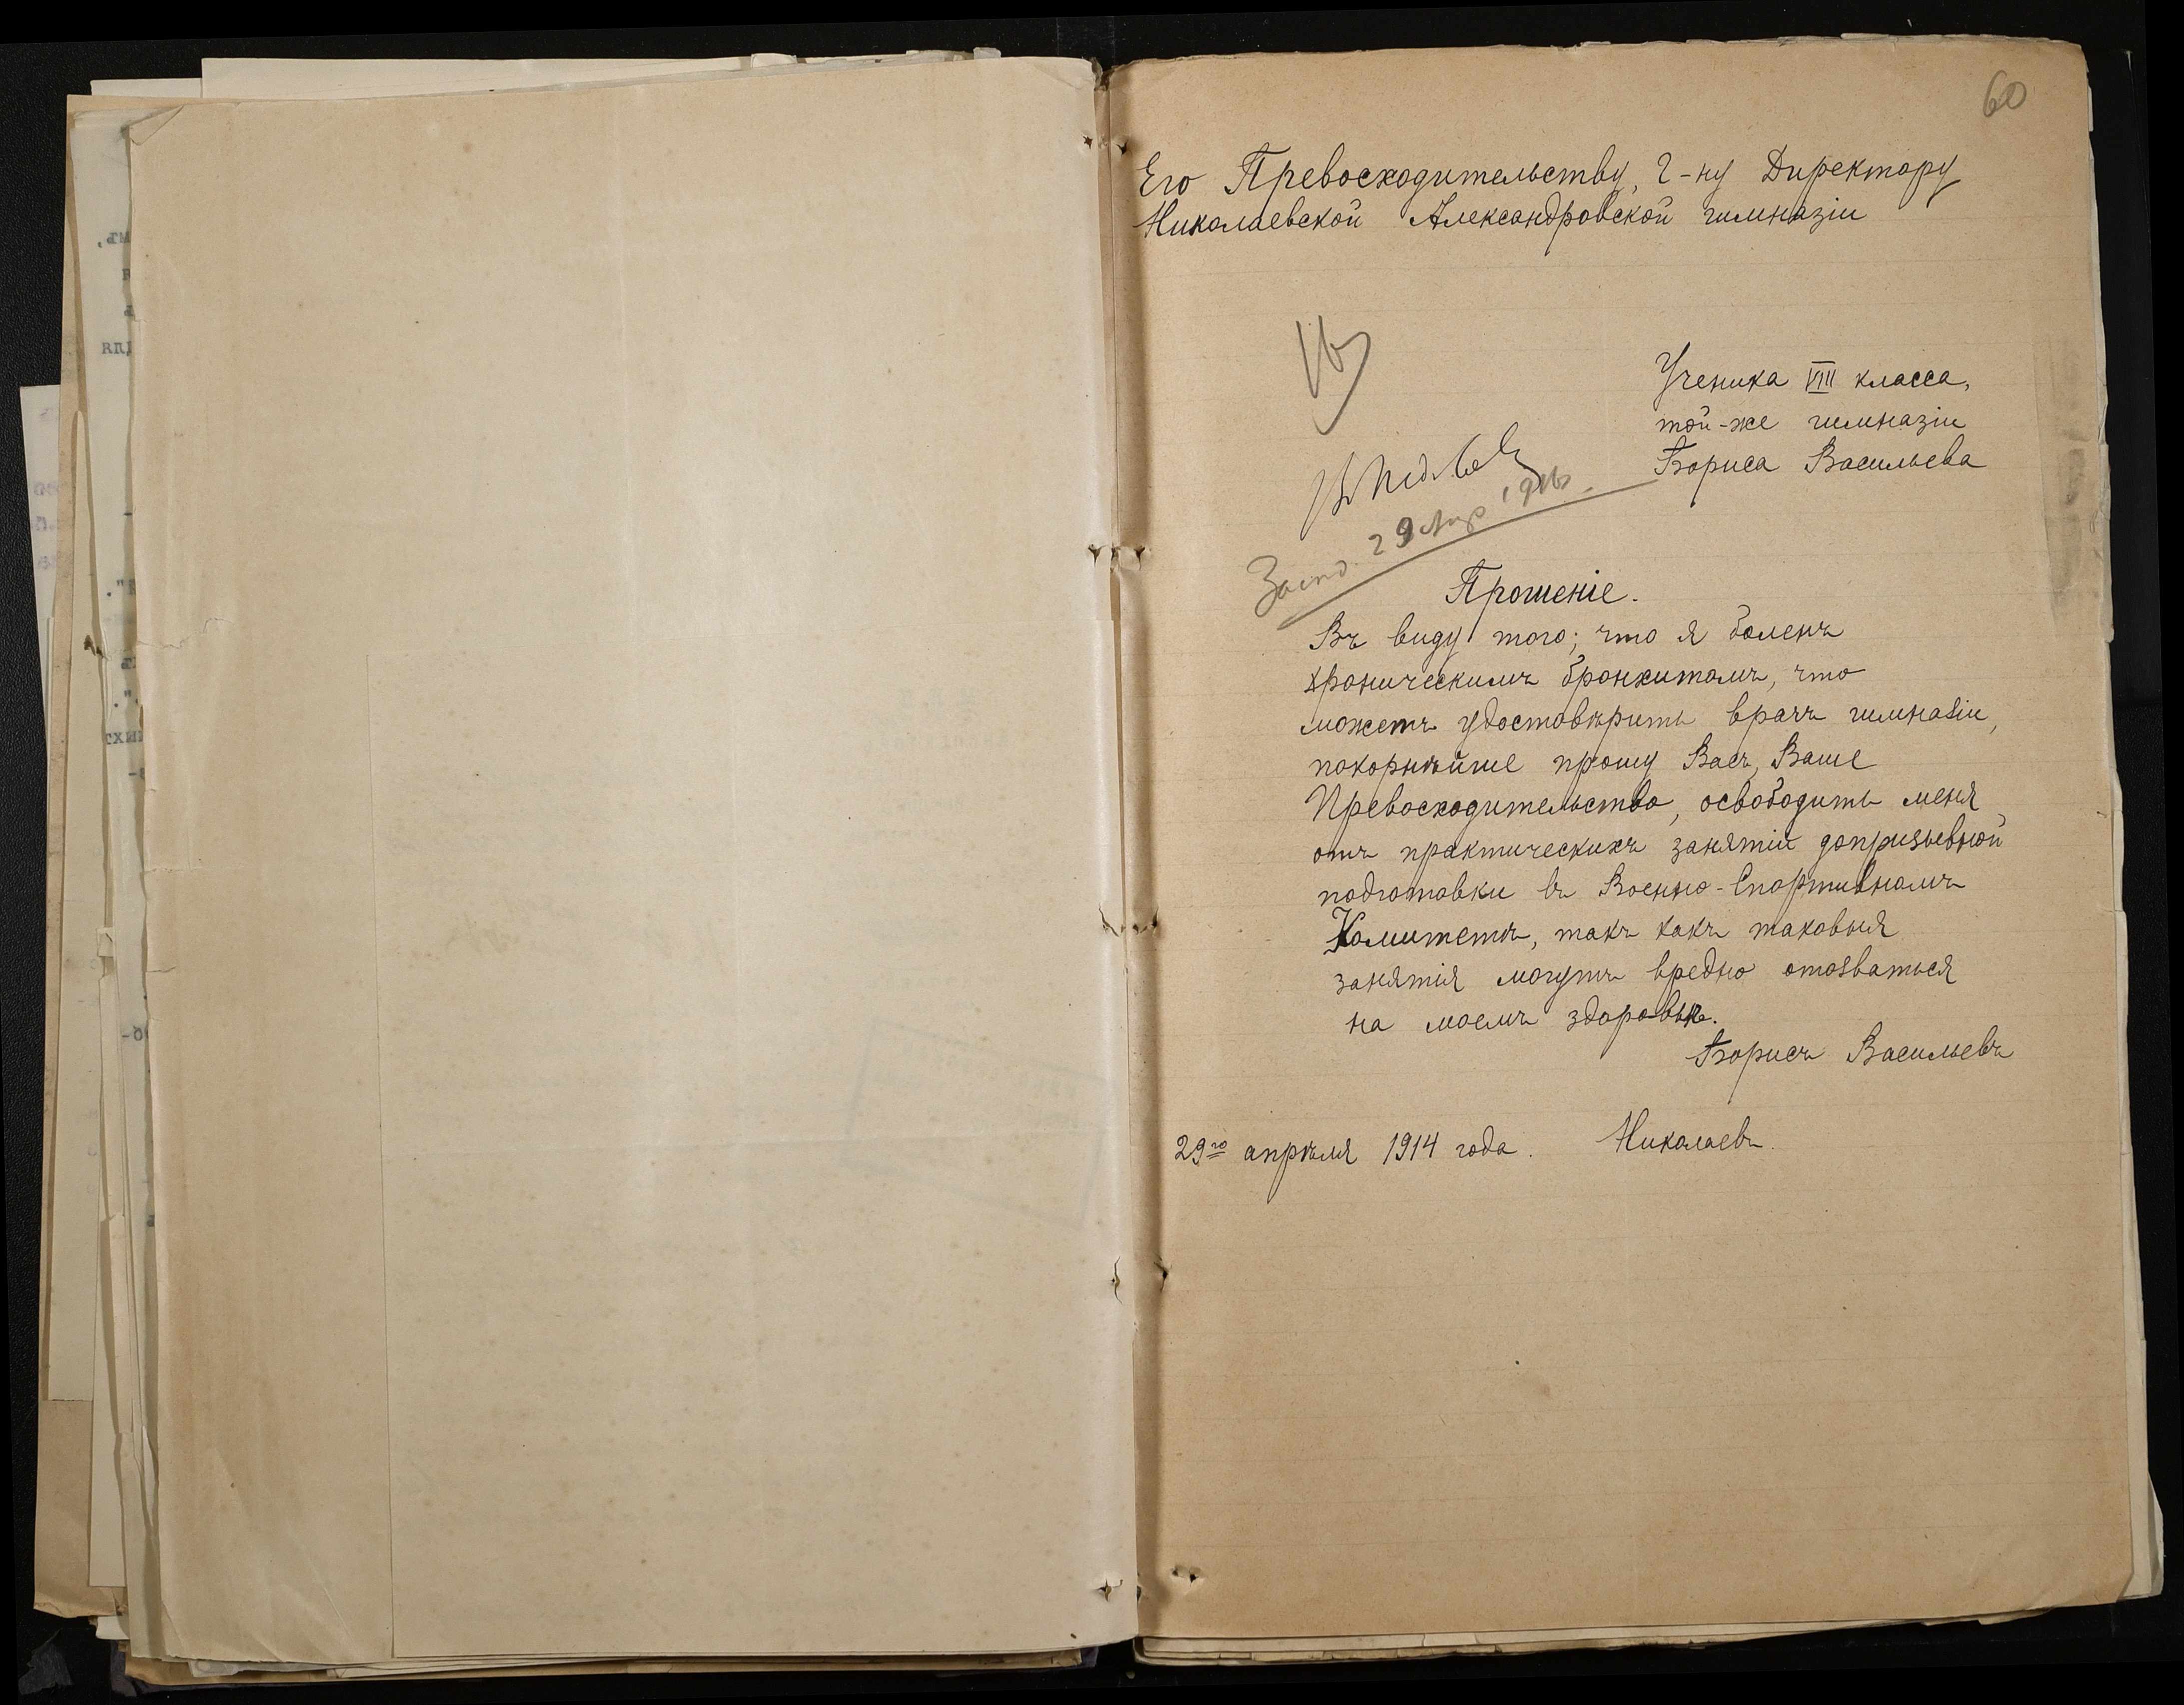 60
Его Превосходительству, г-ну Директору
Николаевской Александровской гимназіи
Ученика VIII класса,
той-же гимназіи
Бориса Васильева
29 Апр 1916.
Прошеніе.
Въ виду того, что я боленъ
хроническимъ бронхитомъ, что
можетъ удостовѣрить врачъ гимназіи,
покорнѣйше прошу Васъ, Ваше
Превосходительство, освободить меня
отъ практическихъ занятій допризывной
подготовки въ Военно-Спортивномъ
Комитетѣ, такъ какъ таковыя
занятія могутъ вредно отозваться
на моемъ здоровьѣ.
Борисъ Васильевъ
29го апрѣля 1914 года. Николаевъ.